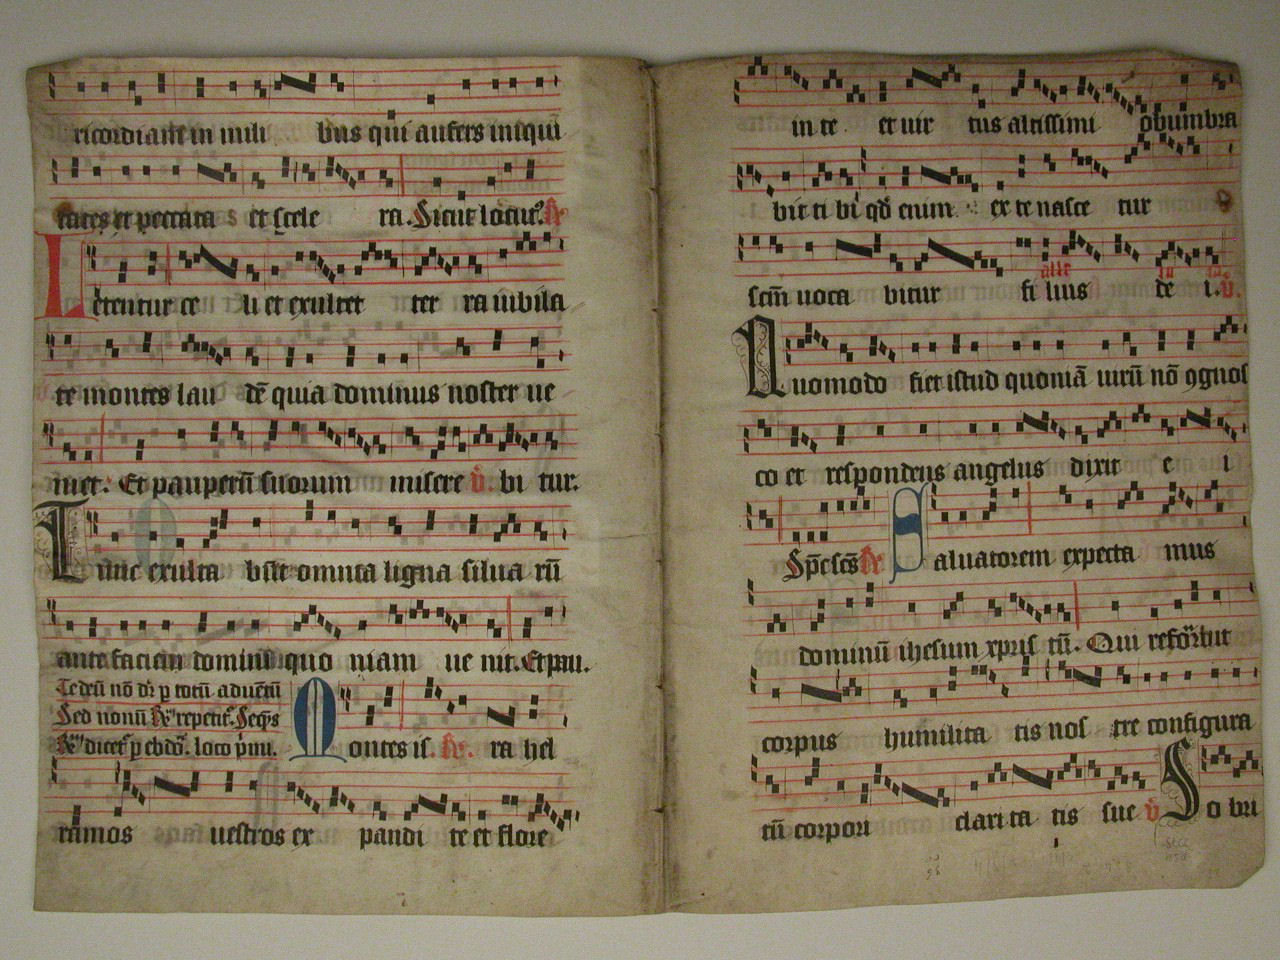 ricordiam̄ in mili bus qui aufers iniqui
tates et peccata s et scele ra. Sicut locut⁹. R̄
Letentur ce li et exultet ter ra iubila
te montes lau dē quia dominus noster ue
niet. Et pauperū suorum misere v̄. bi tur.
Tunc exulta būt omnia ligna silua rū
ante faciem domini quo niam ue nit. Et pau.
Te deū nō dr̄ p totū aduentū
Sed nonū R̄ repetit̄. Seq̄s
R̄ dicet̄ p ebdō. loco p̄mi. Montes is. R̄. ra hel
ramos uestros ex pandi te et flore
in te et uir tus altissimi obumbra
bit ti bi qd̄ enim ex te nasce tur
alle lu ia.
scm̄ uoca bitur fi lius de i. v̄.
Quomodo fiet istud quoniā uirū nō ꝯgnos
co et respondens angelus dixit e i
Sp̄c scs̄ R̄ Saluatorem expecta mus
dominū ihesum xpris tū. Qui refor̄bit
corpus humilita tis nos tre configura
tū corpori clari ta tis sue v̄ So bri